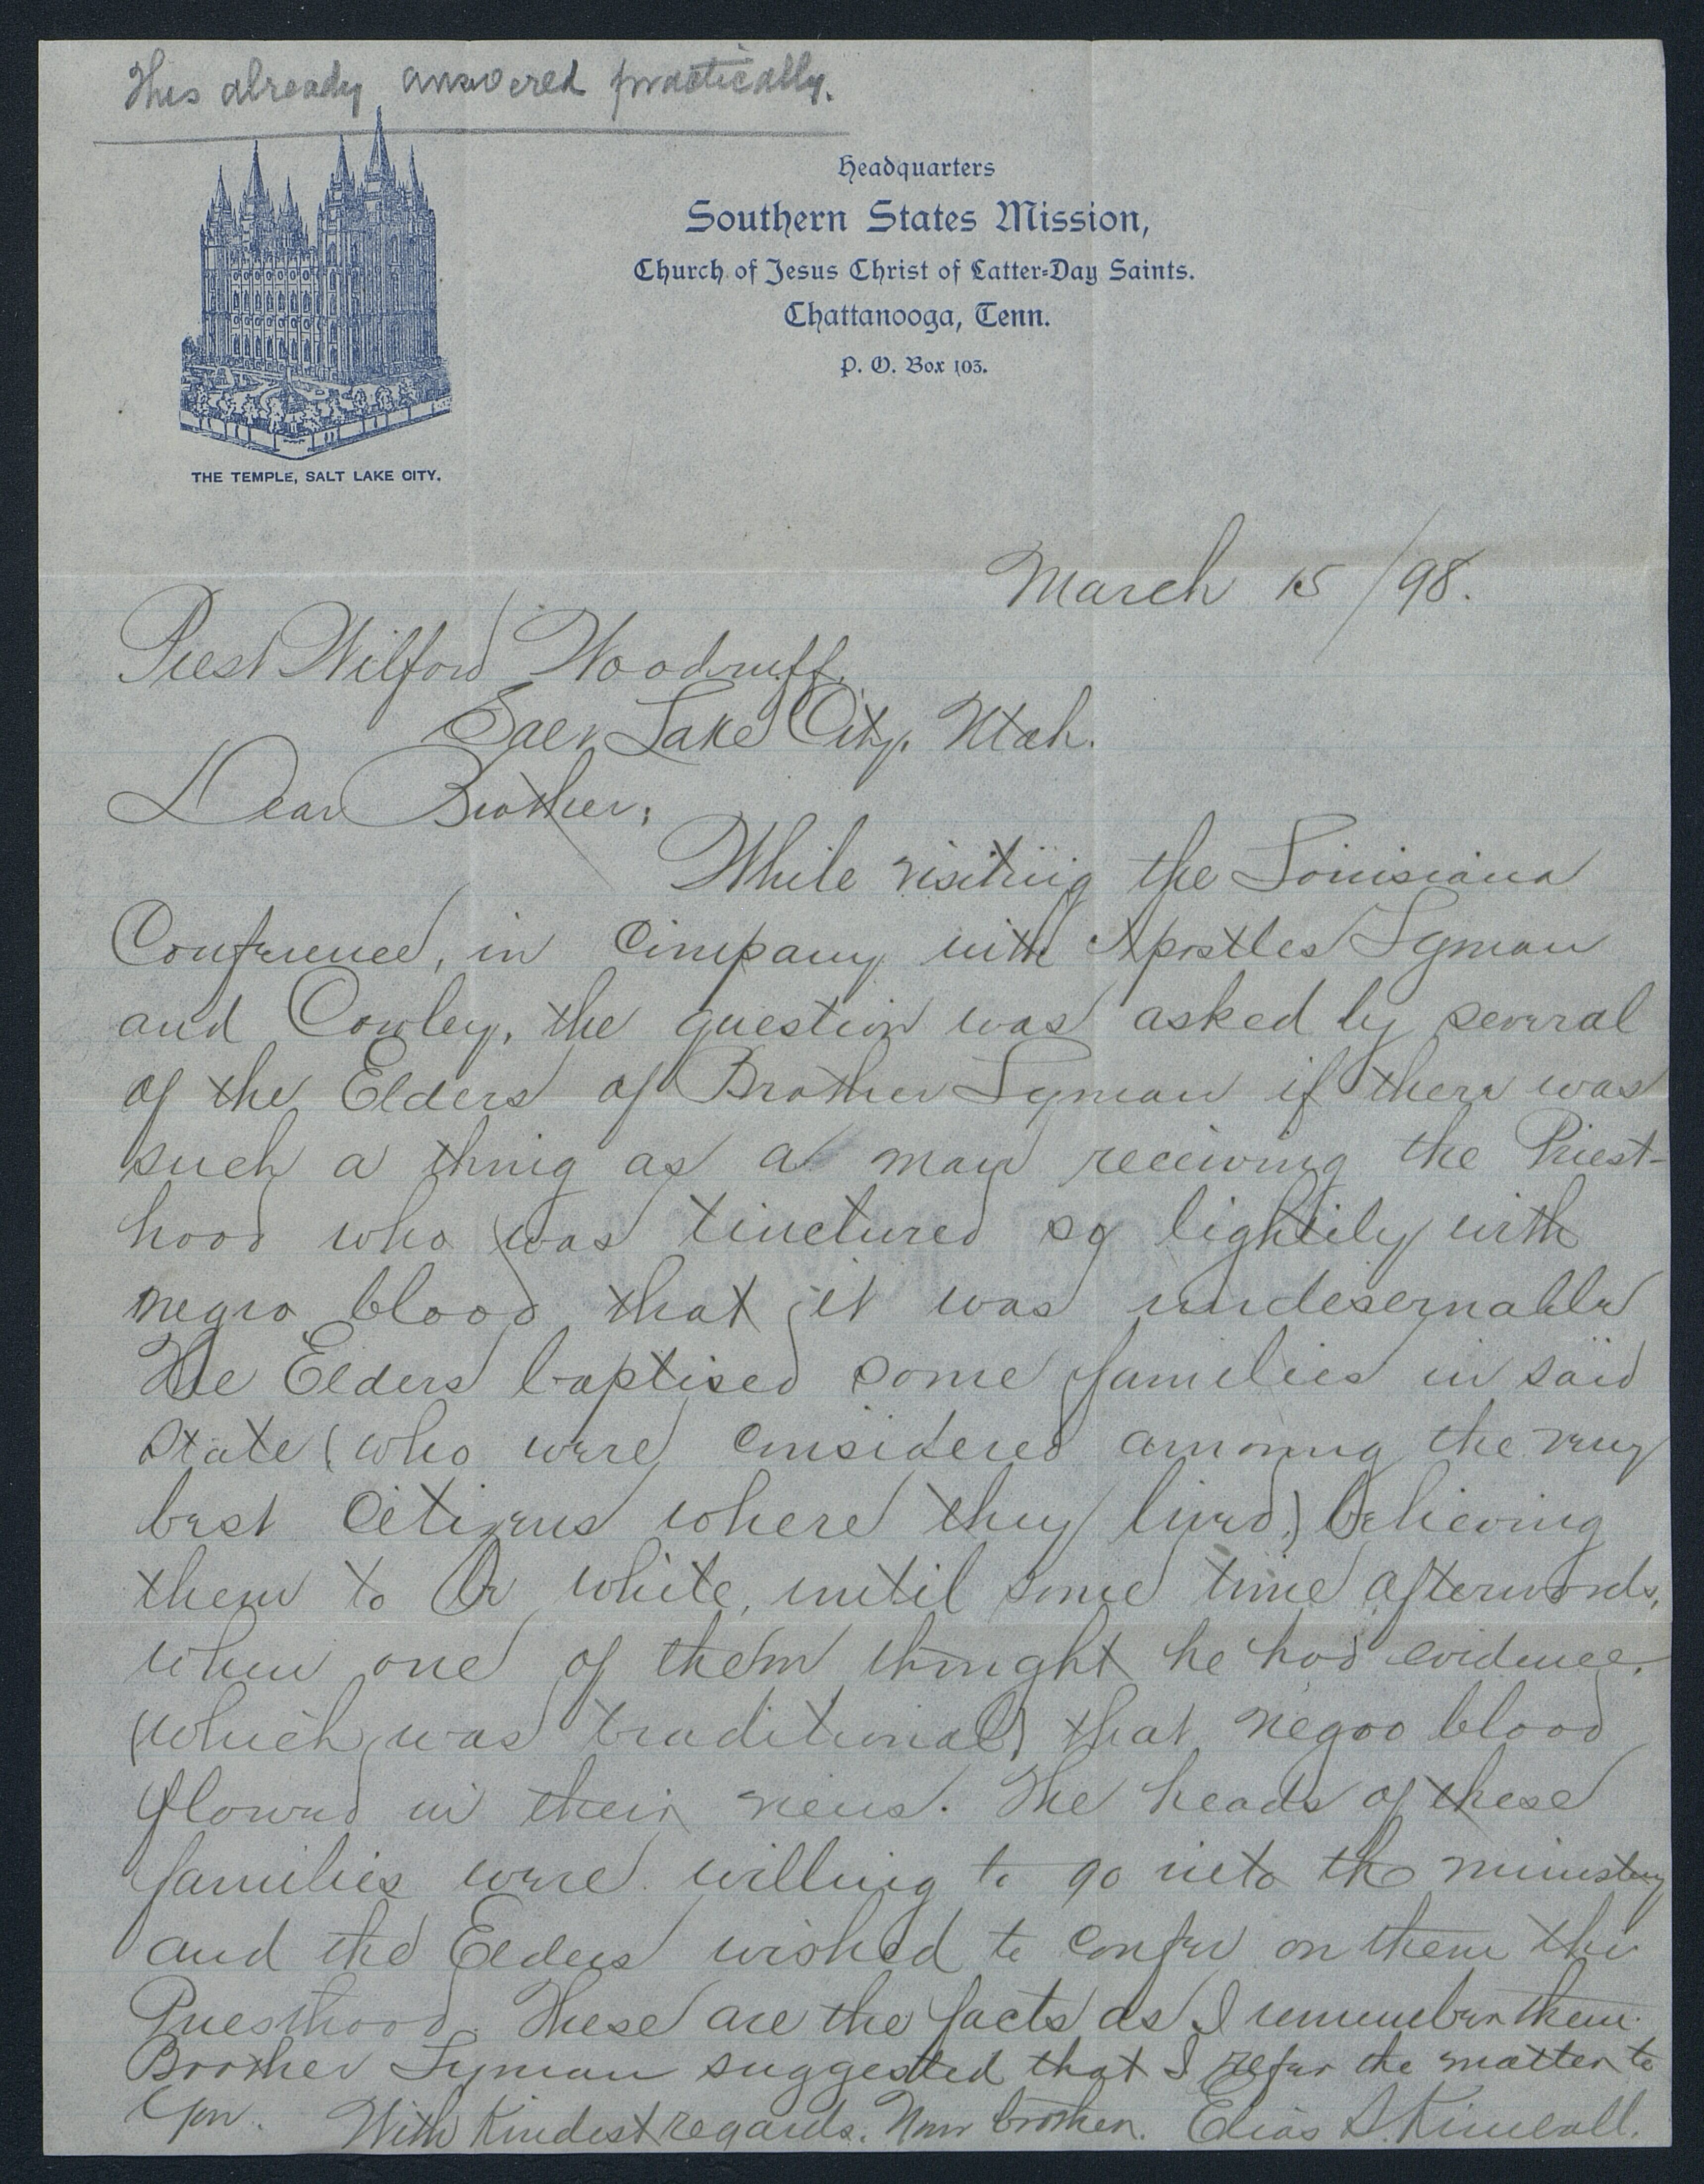 This already answered practically.
Headquarters
Southern States Mission,
Church of Jesus Christ of Latter-Day Saints.
Chattanooga, Tenn.
P. O. Box 103.
THE TEMPLE, SALT LAKE CITY.
March 15/98.
Prest Wilford Woodruff.
Salt Lake City, Utah.
Dear Brother;
While visiting the Louisiana
Conference, in Company with Apostles Lyman
and Cowley, the question was asked by several
of the Elders of Brother Lyman if there was
such a thing as a man receiving the Priest-
hood who was tinctured so lightily with
negro blood that it was undesernable
The Elders baptised some families in said
State (who were considered among the very
best Citizens where they lived) believing
them to be white, until some time afterwords,
when one of them thought he had evidence,
(which was traditional) that negro blood
flowed in their viens. The heads of these
families were willing to go into the ministry
and the Elders wished to confer on them the
Priesthood. These are the facts as I remember them.
Brother Lyman suggested that I refer the matter to
you. With Kindest regards. Your brother. Elias S. Kimball.